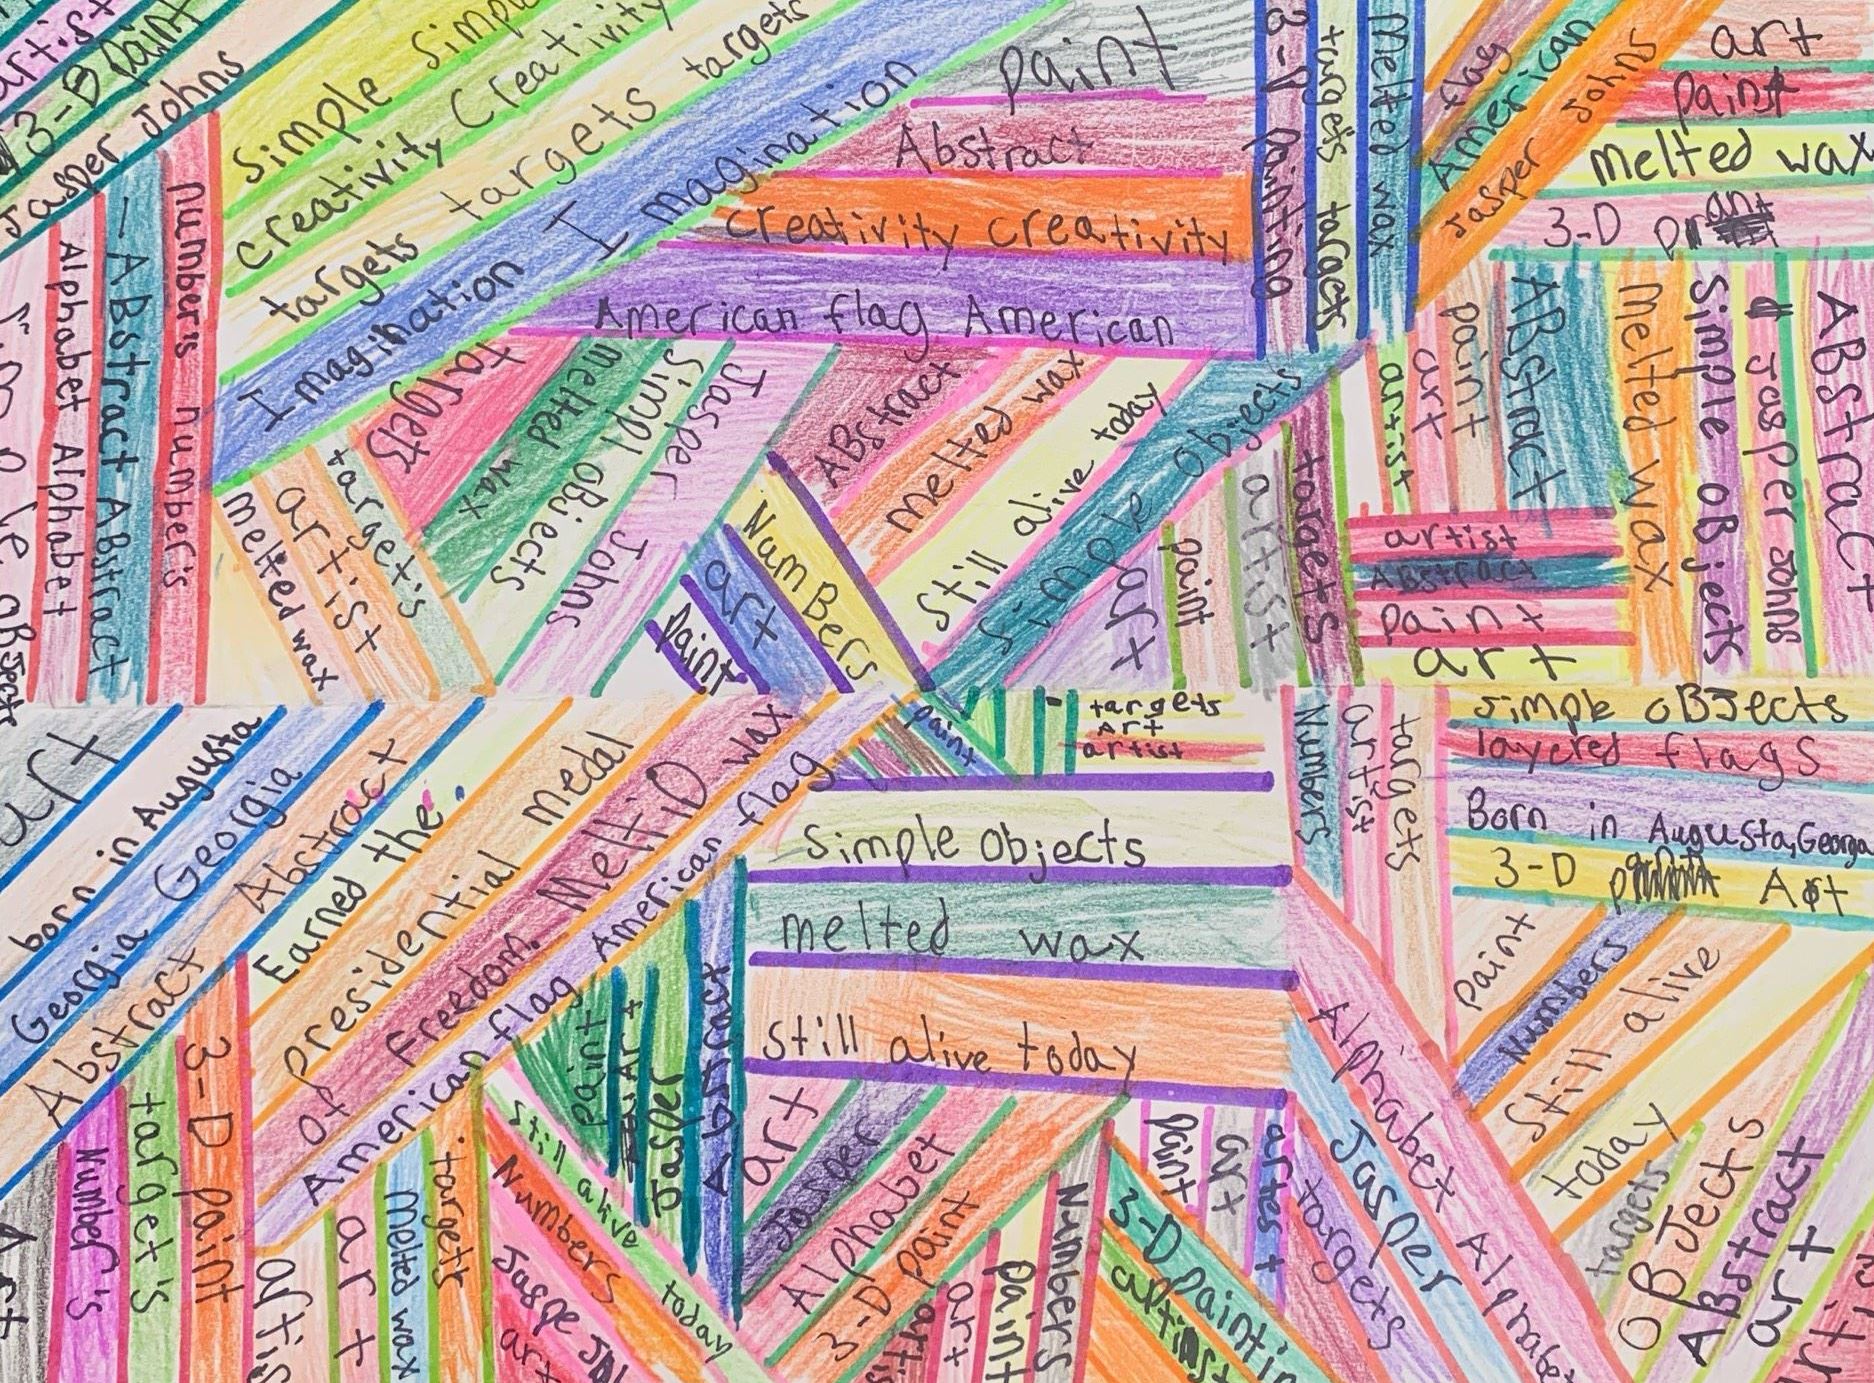 artist
3-D paint
Jasper Johns
Simple Simple
Creativity Creativity Creativity
targets targets targets
Imagination Imagination
paint
Abstract
creativity creativity
American flag American
3-D painting
targets targets
Melted wax
flag
American
Jasper Johns
art
paint
melted wax
3-D
Alphabet Alphabet
ABstract ABstract
Number's number's
melted wax
artist
target's
targets
melted wax
Simpl OBjects
Jasper Johns
ABstract
melted wax
Still alive today
simple objects
NumBers
art
paint
art
paint
artist
targets
artist
art
paint
ABstract
Melted wax
Simple OBjects
Jasper Johns
ABstract
artist
ABstract
paint
art
art
born in Augusta
Georgia Georgia
Abstract Abstract
Earned the
presidential medal
of freedom. MeltiD wax
American flag American flag
paint
targets
Art
artist
Simple Objects
melted wax
Still alive today
Numbers
artist
targets
simple oBJects
layered flags
Born in Augusta,Georgia
3-D Art
paint
Numbers
Still alive
today
targets
OBJects
ABstract
art
Art
Number's
target's
3-D paint
artis
art
Melted wax
targets
still alive today
Numbers
Jaspe
art
paint
Art
Jasper
Abstract
art
Jasper
Alphabet
3-D paint
art
paint
Numbers
3-D paintin
paint
art
artest
targets
Jasper
Alphabet Alphabet